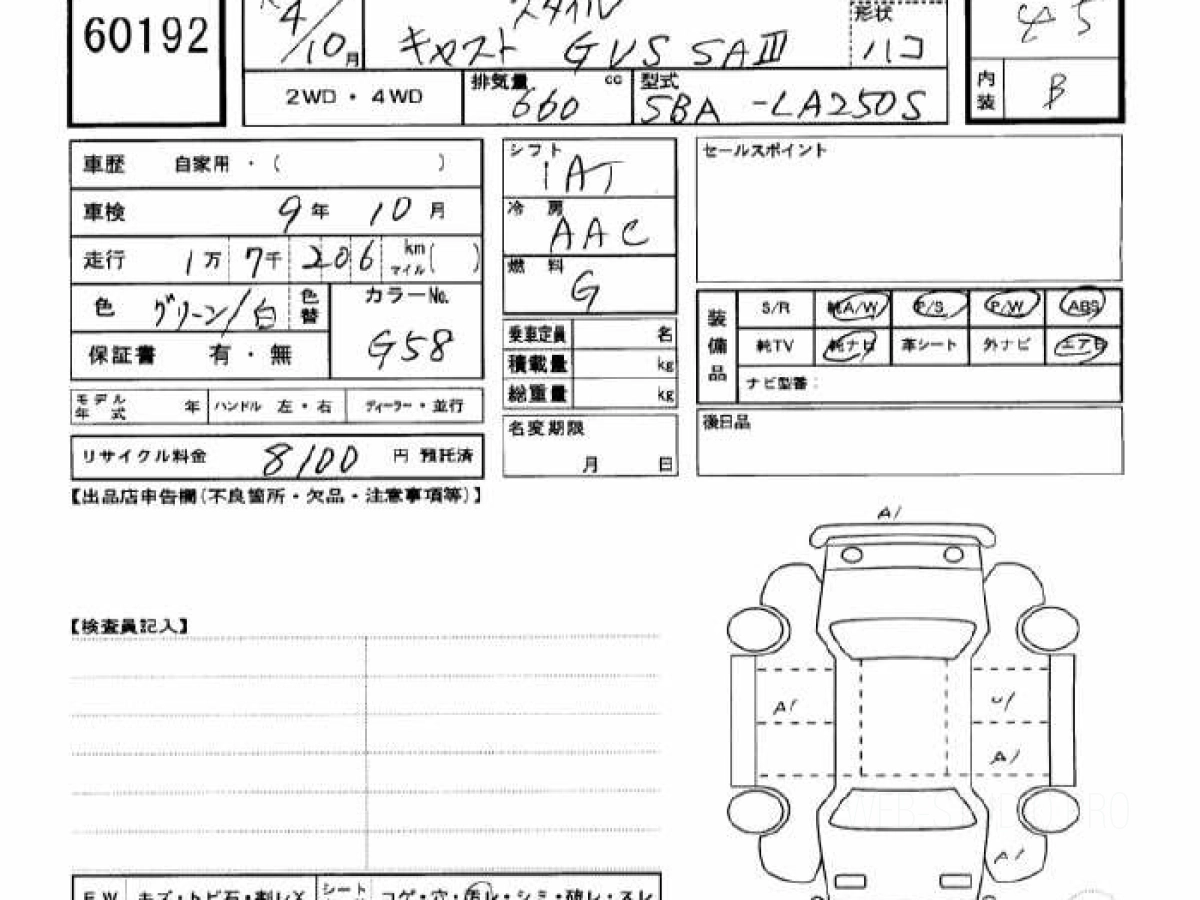 60192
4/10月
スタイル
キャスト GVS SAⅢ
形状
ハコ
45
2WD・4WD
排気量 660 cc
型式
SBA -LA250S
内装 B
車歴 自家用・( )
車検 9年 10月
走行 1万 7千 206 km マイル( )
色 グリーン/白 色替
カラーNo.
G58
保証書 有・無
モデル年式 年 ハンドル 左・右 ディーラー・並行
リサイクル料金 8100 円 預託済
シフト
IAT
冷房
AAC
燃料
G
乗車定員 名
積載量 kg
総重量 kg
名変期限
月 日
セールスポイント
装備品
S/R 純A/W P/S P/W ABS
純TV 純ナビ 革シート 外ナビ エアB
ナビ型番:
後日品
【出品店申告欄(不良箇所・欠品・注意事項等)】
【検査員記入】
A1
A1
U1
A1
A1
FW キズ・トビ石・割レX
シート コゲ・穴・汚レ・シミ・破レ・スレ